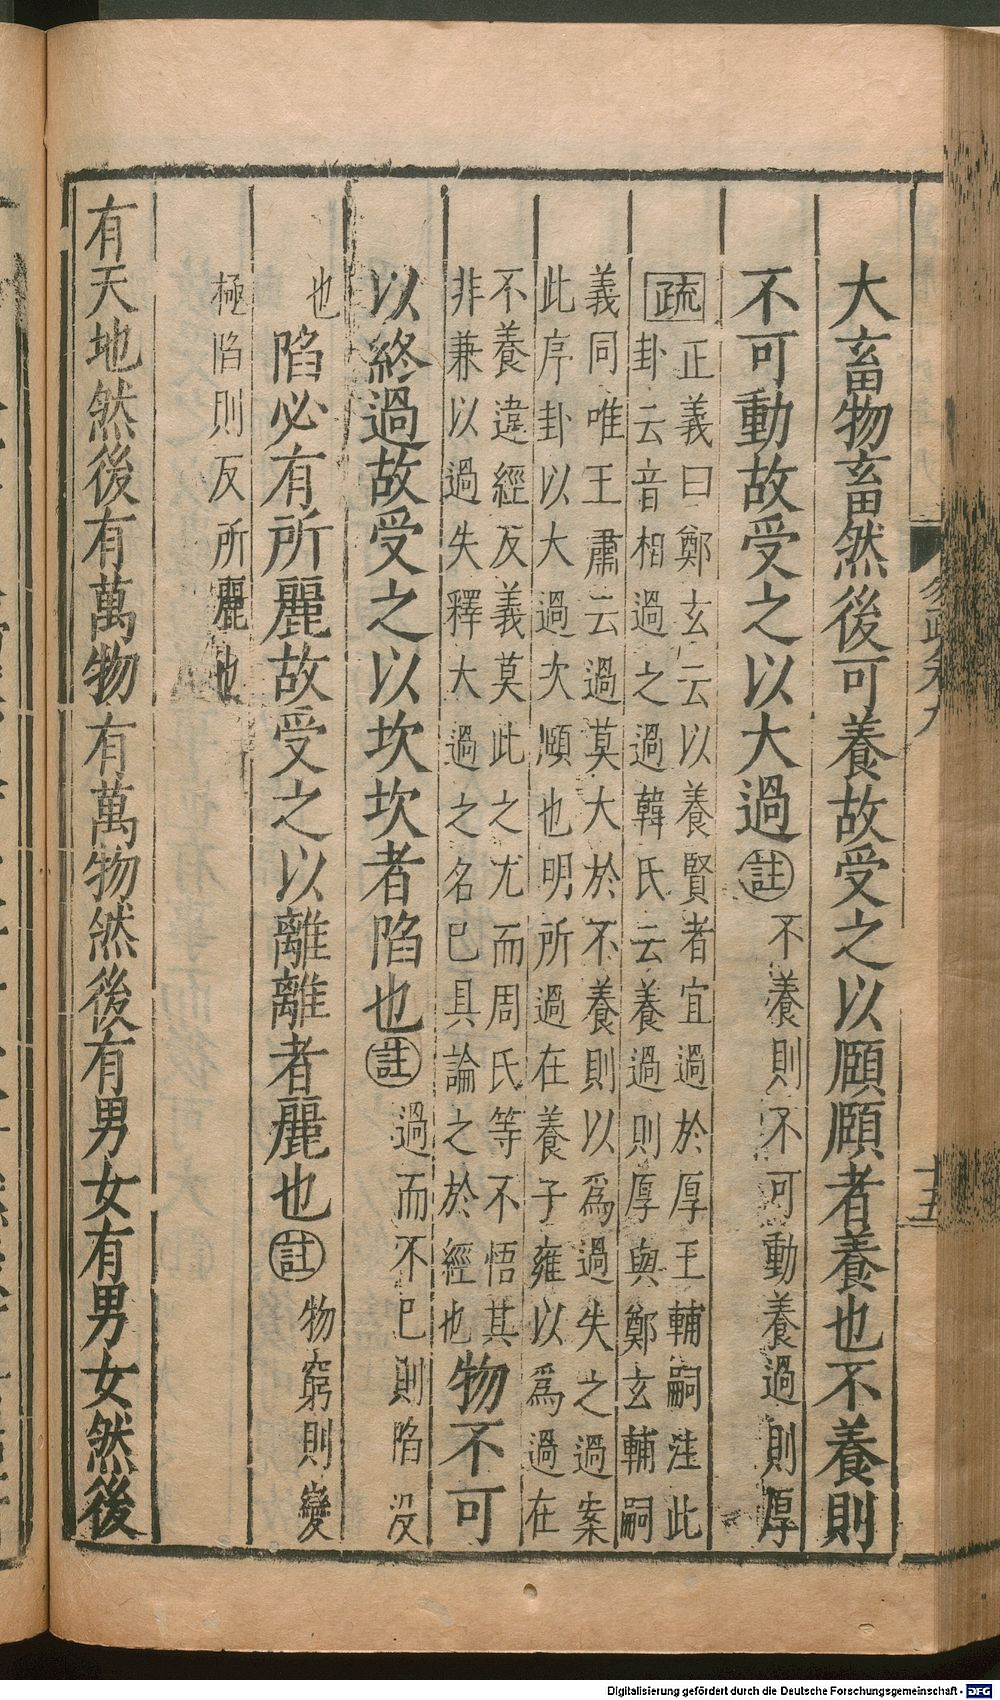 大畜物畜然後可養故受之以頤頤者養也不養則
不可動故受之以大過註不養則不可動養過則厚
疏正義曰鄭玄云以養賢者宜過於厚王輔嗣注此
卦云音相過之過韓氏云養過則厚與鄭玄輔嗣
義同唯王肅云過莫大於不養則以爲過失之過案
此序卦以大過次頤也明所過在養子雍以爲過在
不養違經反義莫此之尤而周氏等不悟其
非兼以過失釋大過之名已具論之於經也
物不可
以終過故受之以坎坎者陷也註過而不已則陷没
也
陷必有所麗故受之以離離者麗也註物窮則變
極陷則反所麗也
有天地然後有萬物有萬物然後有男女有男女然後
Digitalisierung gefördert durch die Deutsche Forschungsgemeinschaft - DFG